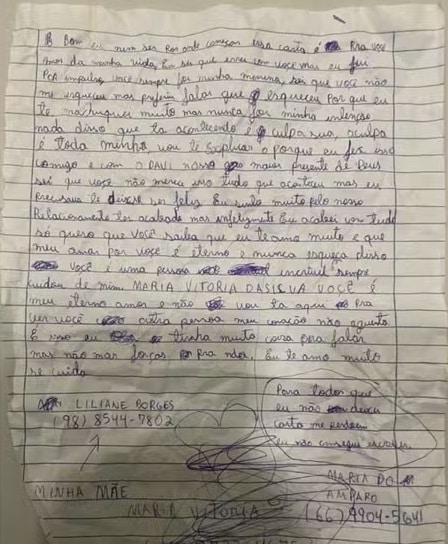 Bom eu nem sei por onde começar essa carta é pra você
amor da minha vida, Eu sei que errei com você mas eu fui
por impulso, você sempre foi minha menina, sei que você não
me esqueceu mas preferiu falar que esqueceu porque eu
te machuquei muito mas nunca foi minha intenção
nada disso que ta acontecendo é culpa sua, a culpa
é toda minha vou te explicar o porque eu fiz isso
comigo e com o DAVI nosso maior presente de Deus
sei que você não merece isso tudo que aconteceu mas eu
precisava te deixar ser feliz Eu sinto muito pelo nosso
Relacionamento ter acabado mas infelizmente Eu acabei com tudo
só quero que você saiba que eu te amo muito e que
meu amor por você é eterno e nunca esqueça disso
você é uma pessoa incrível sempre
cuidou de mim MARIA VITORIA DASILVA VOCÊ É
meu eterno amor e não vou ta aqui pra
ver você outra pessoa meu coração não aguenta
É isso eu tinha muita coisa pra falar
mas não mas forças pra nda, Eu te amo muito
se cuida
LILIANE BORGES
(98) 8544-7802
MINHA MÃE
Para todos que
eu não deixei
carta me perdoem
eu não consegui escrever
MARIA DO
AMPARO
(66) 9904-5641
MARIA VITORIA